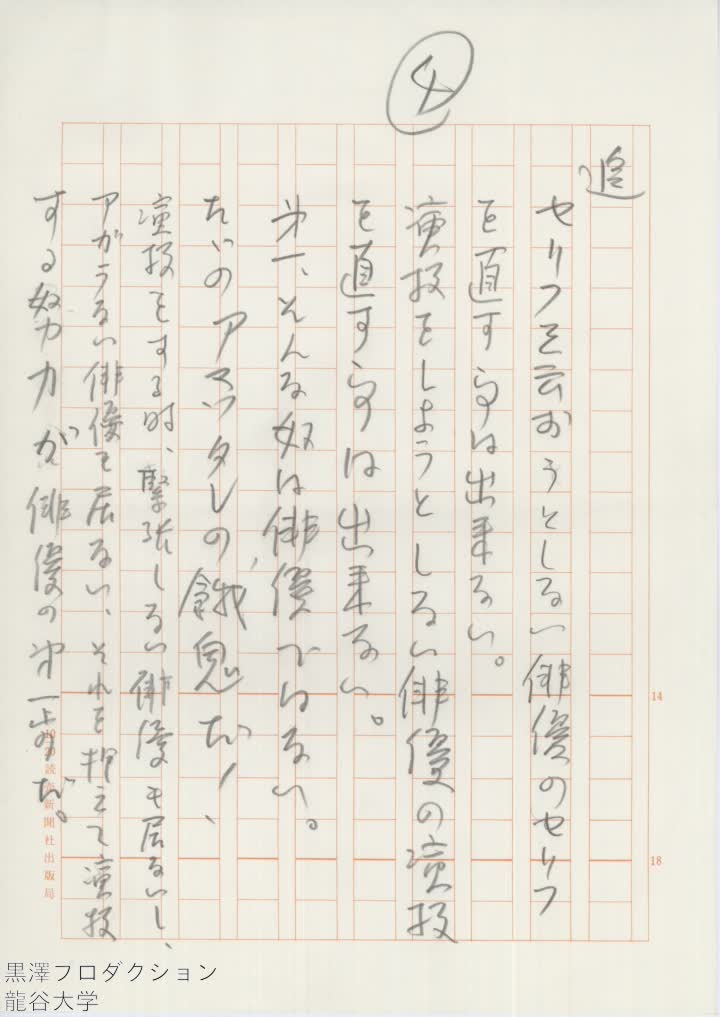 4
追
セリフを云おうとしない俳優のセリフ
を直す事は出来ない。
演技をしようとしない俳優の演技
を直す事は出来ない。
第一、そんな奴は俳優ではない。
たゞのアマッタレの餓鬼だ!、
演技をする時、緊張しない俳優も居ないし、
アガラない俳優も居ない、それを押えて演技
する努力が俳優の第一歩だ。
14
18
10 20 読売新聞社出版局
黒澤プロダクション
龍谷大学